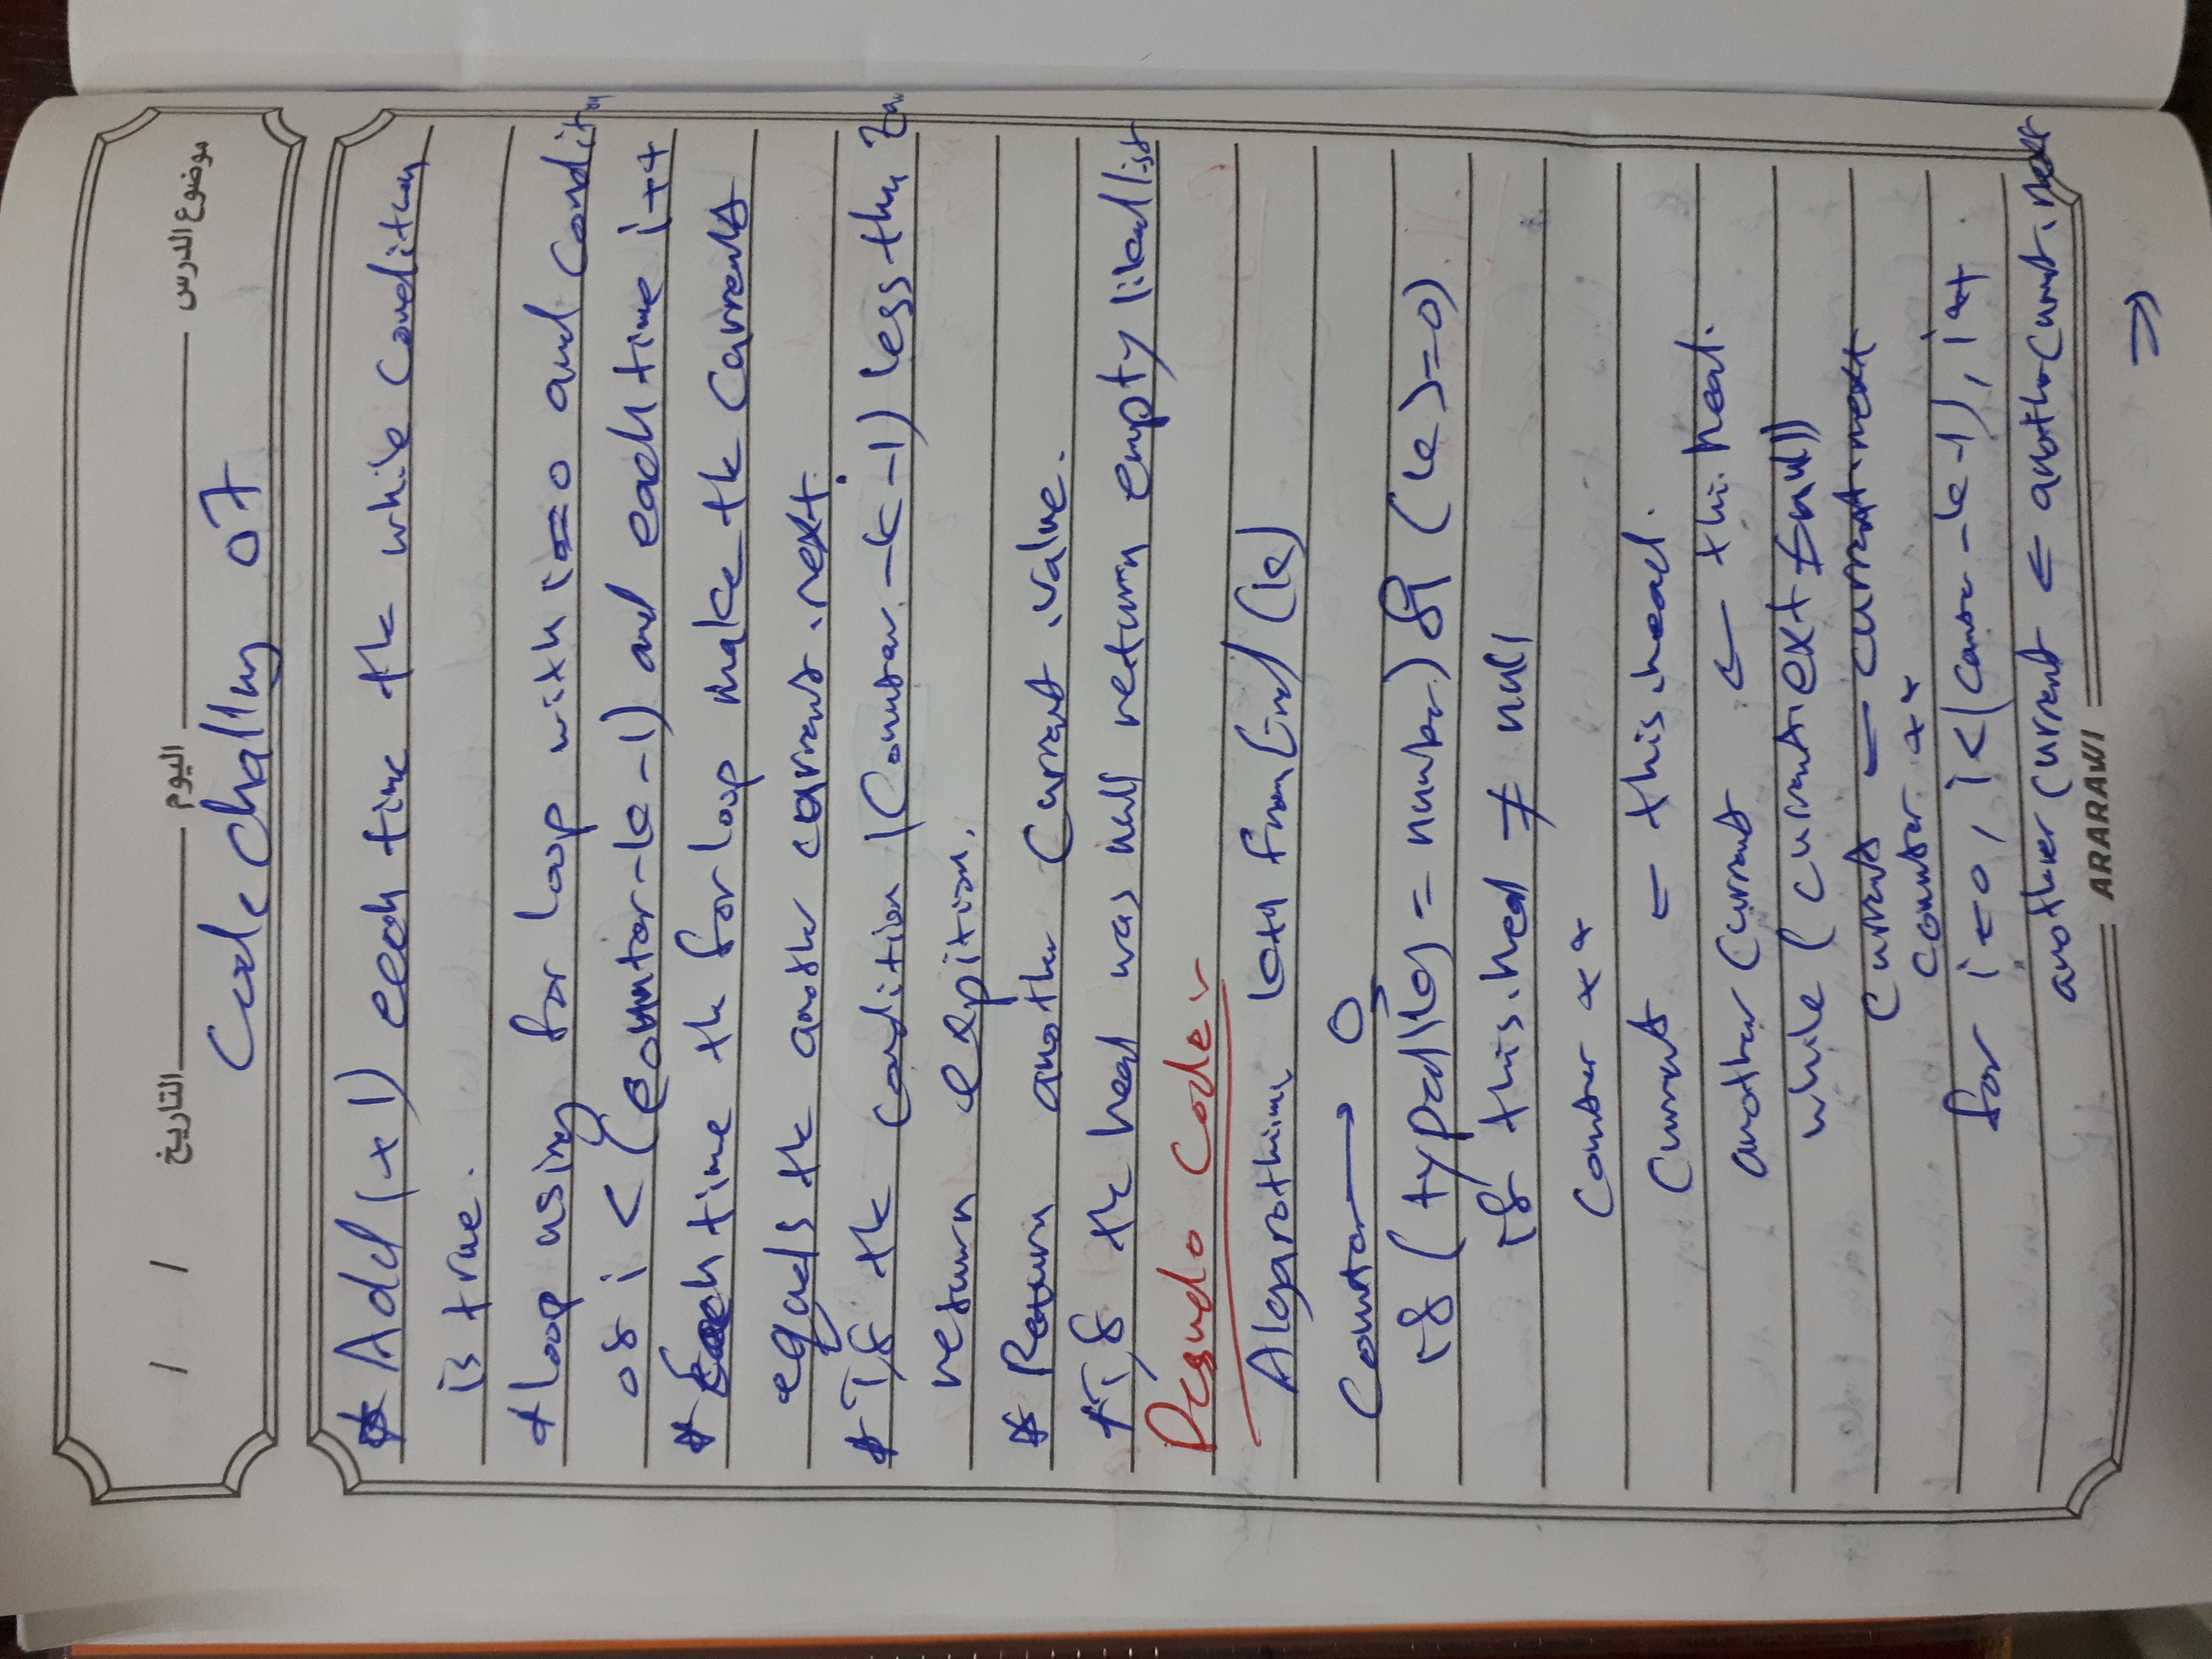 موضوع الدرس اليوم التاريخ / /
Code challeng 07
* Add (+1) eech time the while condition
is true.
* loop using for loop with i=0 and condition
of i < (counter-k-1) and each time i++
* Each time the for loop make the current
equals the another current.next.
* If the condition (Counter-k-1) less than
return expition.
* Return another Current.value.
* If the head was null return empty liked list
Pesudo Code
Algarothim kth from End (k)
Counter → 0
if (typeof(k) = number) & (k>=0)
if this.head ≠ null
Counter ++
Current ← this.head.
another Current ← this.head.
while (current.ext ≠ null)
Current ← current.next
counter ++
for i=0, i<(counter-k-1), i++
another current ← another Current.next
ARARAWI
⇒